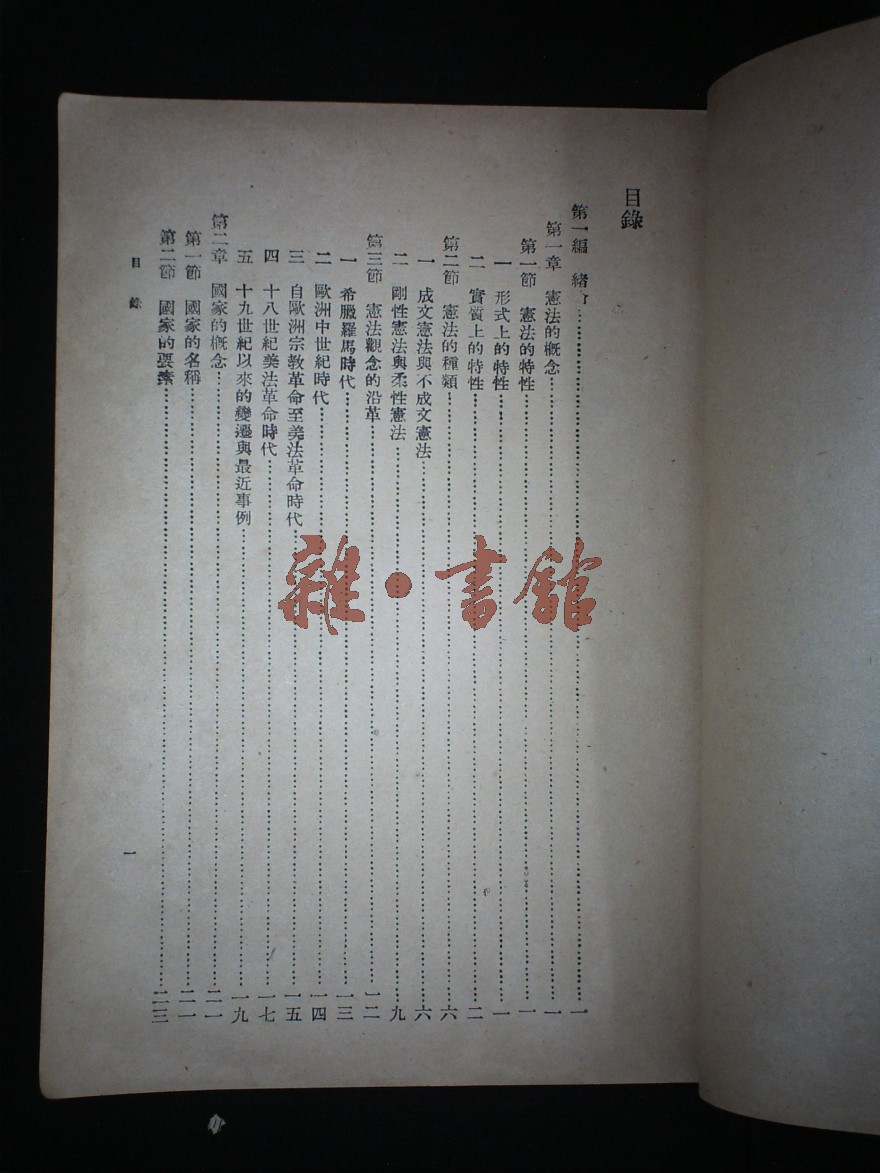 目錄
第一編 緒……一
第一章 憲法的概念……一
第一節 憲法的特性……一
一 形式上的特性……一
二 實質上的特性……二
第二節 憲法的種類……六
一 成文憲法與不成文憲法……六
二 剛性憲法與柔性憲法……九
第三節 憲法觀念的沿革……一二
一 希臘羅馬時代……一三
二 歐洲中世紀時代……一四
三 自歐洲宗教革命至美法革命時代……一五
四 十八世紀美法革命時代……一七
五 十九世紀以來的變遷與最近事例……一九
第二章 國家的概念……二一
第一節 國家的名稱……二一
第二節 國家的要素……二三
目錄
一
雜·書館